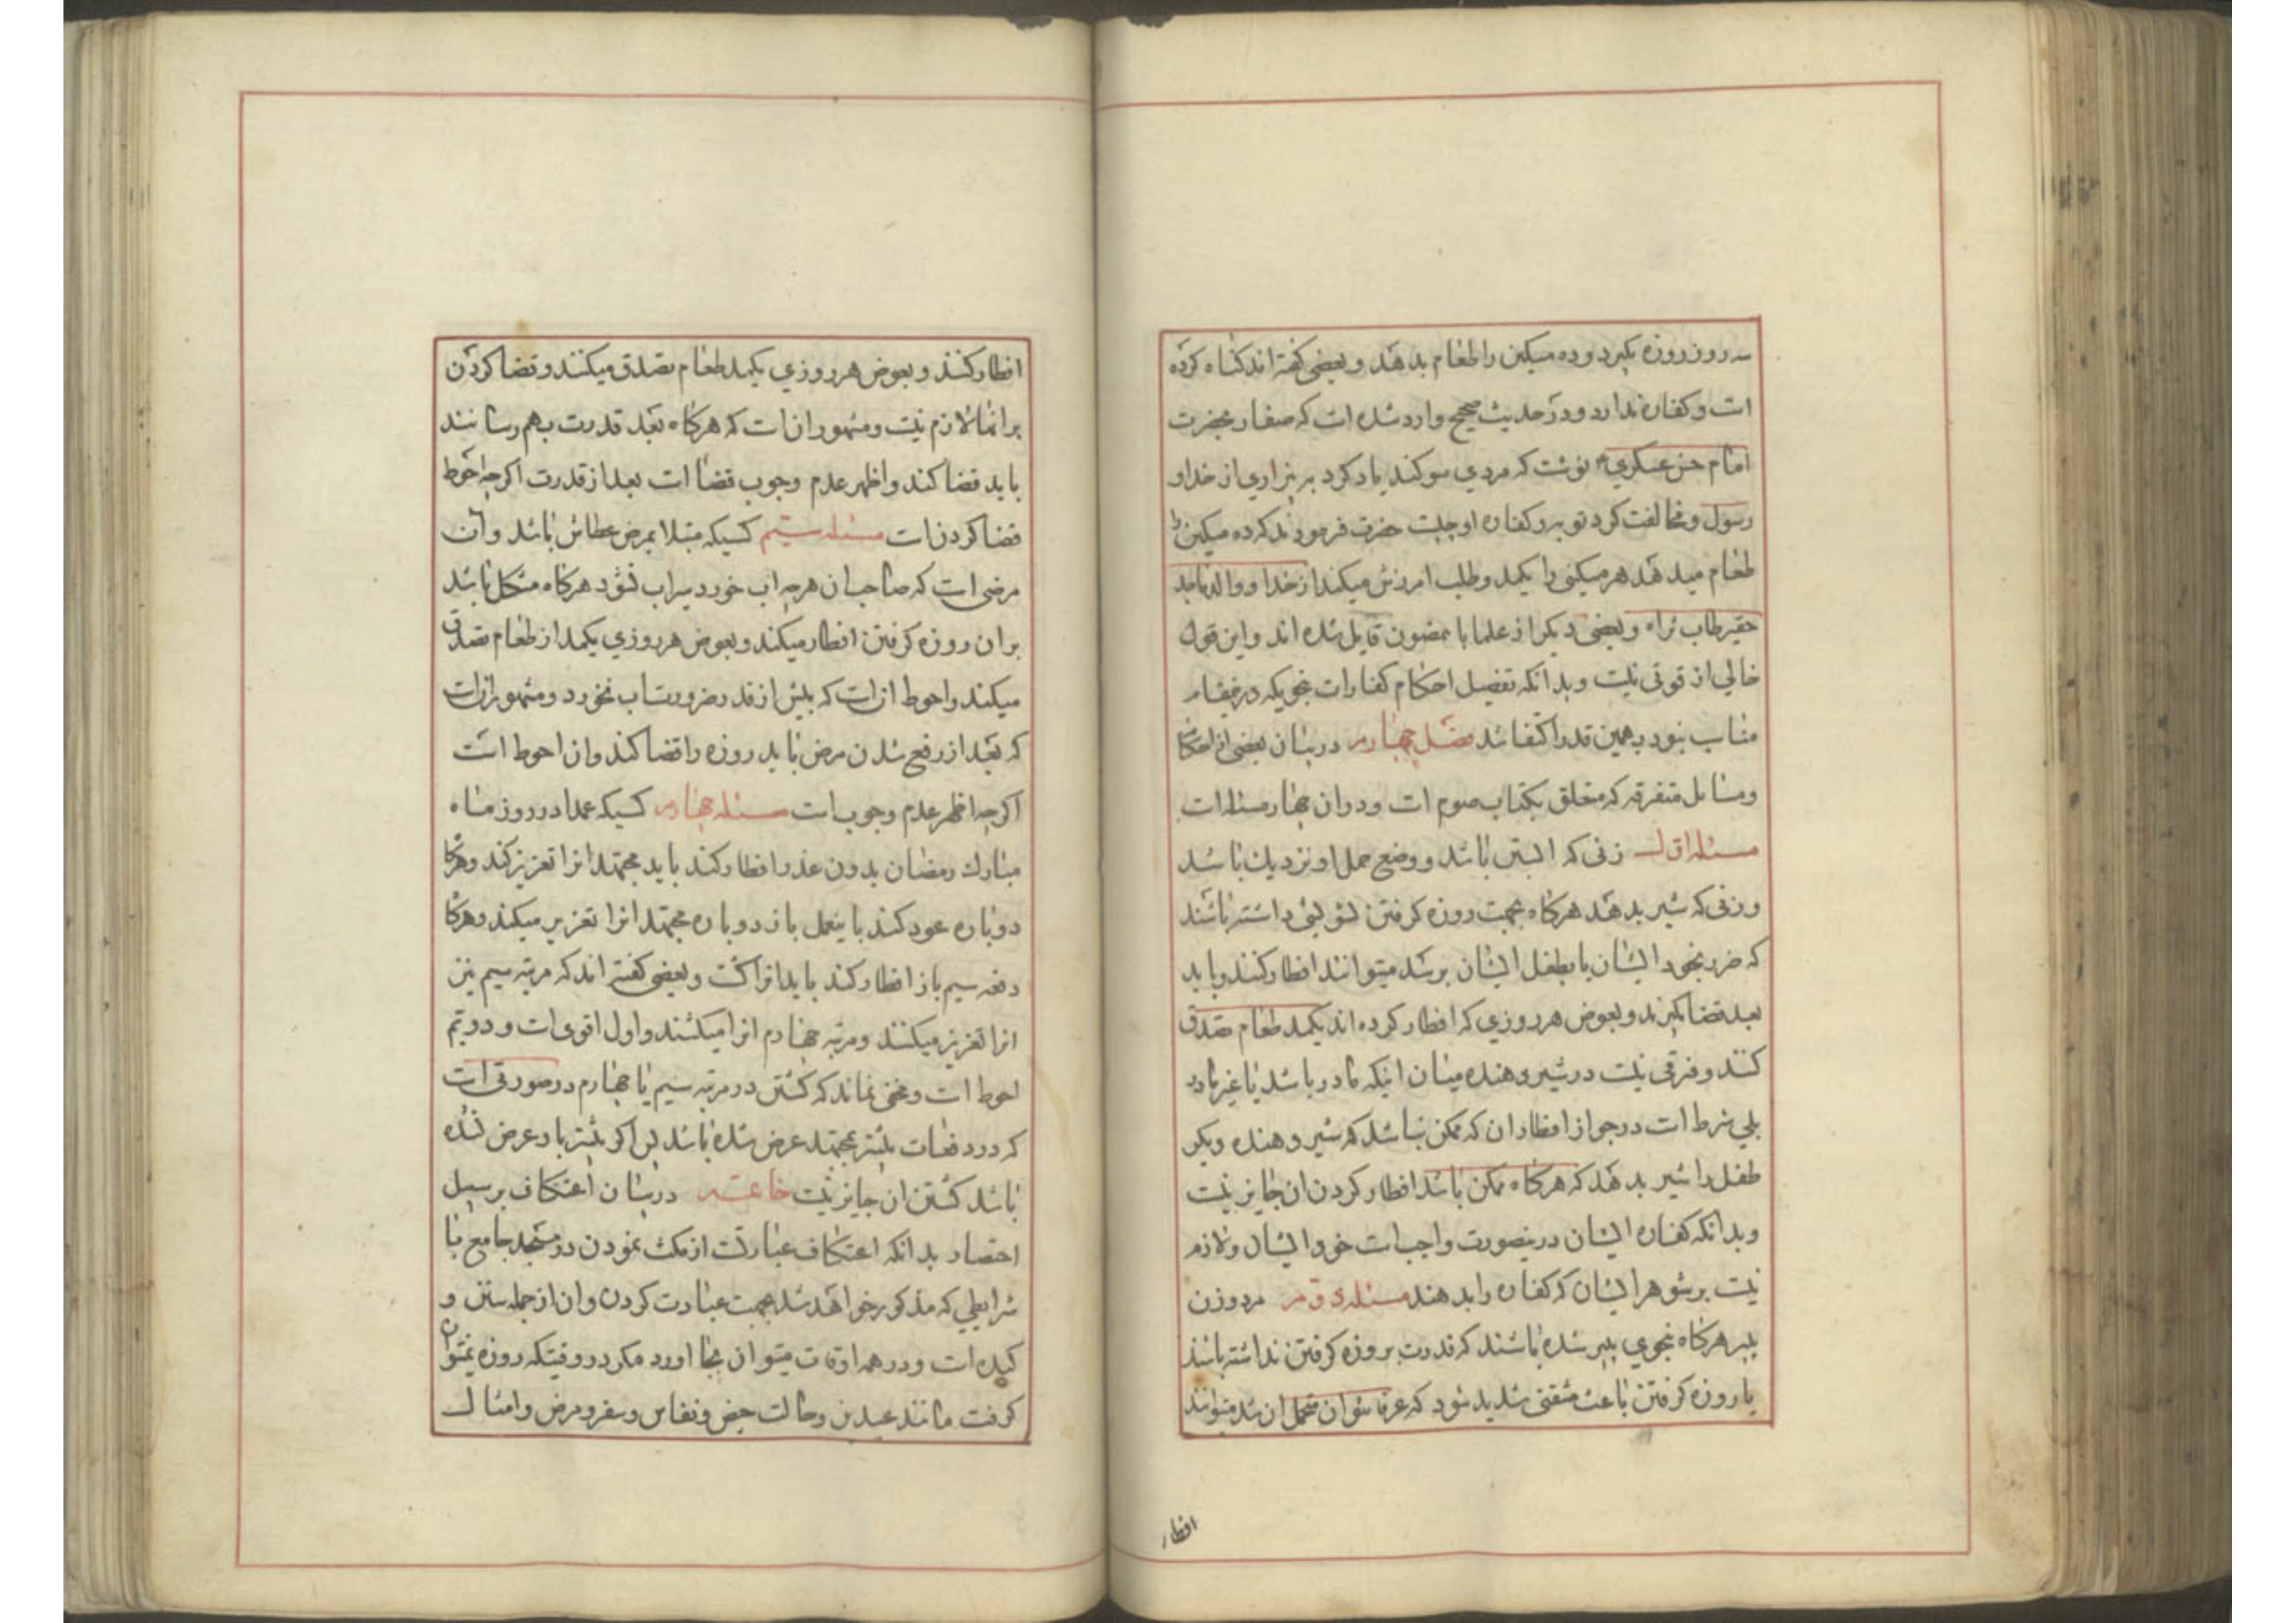 سه روز روزه بکیرد و ده مسکین را طعام بدهد و بعضی کفته اند کناه کرده
است و کفاره ندارد و در حدیث صحیح وارد شده است که صفار بحضرت
امام حسن عسکری ع نوشت که مردی سوکند یاد کرد به بیزاری از خدا و
رسول و مخالفت کرد توبه و کفاره او چیست حضرت فرمودند که ده مسکین را
طعام میدهد هر مسکینی را یکمد و طلب امرزش میکند از خدا و والد ماجد
حقیر طاب ثراه و بعضی دیکر از علما باینمضمون قایل شده اند و این قول
خالی از قوتی نیست و بدانکه تفصیل احکام کفارات بنحویکه در اینمقام
مناسب بنود بهمین قدر اکتفا شد فصل چهارم در بیان بعضی از احکام
و مسائل متفرقه که متعلق بکتاب صوم است و در ان چهار مسئله است
مسئله اول زنی که ابستن باشد و وضع حمل او نزدیک باشد
و زنی که شیر بدهد هرکاه بجهت روزه کرفتن تشویشی داشته باشند
که ضرر بخود ایشان یا بطفل ایشان برسد میتوانند افطار کنند و باید
بعد قضا بکیرند و بعوض هر روزی که افطار کرده اند یکمد طعام تصدق
کنند و فرقی نیست در شیر دهنده میان اینکه مادر باشد یا غیر مادر
بلی شرط است در جواز افطار ان که ممکن نباشد که شیر دهنده دیکر
طفل را شیر بدهد که هرکاه ممکن باشد افطار کردن ان جایز نیست
و بدانکه کفاره ایشان در اینصورت واجبست خود ایشان و لازم
نیست بر شوهر ایشان که کفاره را بدهند مسئله دوم مرد و زن
پیر هرکاه بنحوی پیر شده باشند که قدرت بروزه کرفتن نداشته باشند
یا روزه کرفتن باعث مشقتی شدید شود که عرفا نتوان متحمل ان شد میتوانند
افطار
افطار کنند و بعوض هر روزی یکمد طعام تصدق میکنند و قضا کردن
بر انها لازم نیست و مشهور ان است که هرکاه بعد قدرت بهم رسانند
باید قضا کنند و اظهر عدم وجوب قضا است بعد از قدرت اکرچه احوط
قضا کردن است مسئله سیم کسیکه مبتلا بمرض عطاش باشد و ان
مرضی است که صاحب ان هرچه اب خورد سیراب نشود هرکاه مشکل باشد
بر ان روزه کرفتن افطار میکند و بعوض هر روزی یکمد از طعام تصدق
میکند و احوط ان است که بیش از قدر ضرورت اب نخورد و مشهور ان است
که بعد از رفع شدن مرض باید روزه را قضا کند و ان احوط است
اکرچه اظهر عدم وجوب است مسئله چهارم کسیکه عمدا در روز ماه
مبارک رمضان بدون عذر افطار کند باید مجتهد انرا تعزیر کند و هرکاه
دوباره عود کند باینعمل باز دوباره مجتهد انرا تعزیر میکند و هرکاه
دفعه سیم باز افطار کند باید انرا کشت و بعضی کفته اند که مرتبه سیم نیز
انرا تعزیر میکنند و مرتبه چهارم انرا میکشند و اول اقوی است و دویم
احوط است و مخفی نماند که کشتن در مرتبه سیم یا چهارم در صورتی است
که در دفعات پیشتر بمجتهد عرض شده باشد پس اکر پیشتر باو عرض نشده
باشد کشتن ان جایز نیست خاتمه در بیان اعتکاف بر سبیل
اختصار بدانکه اعتکاف عبارتست از مکث نمودن در مسجد جامع با
شرایطی که مذکور خواهد شد بجهت عبادت کردن و ان از جمله سنن و
کیده است و در همه اوقات میتوان بجا اورد مکر در وقتیکه روزه نمیتوان
کرفت مانند عیدین و حالت حیض و نفاس و سفر و مرض و امثال